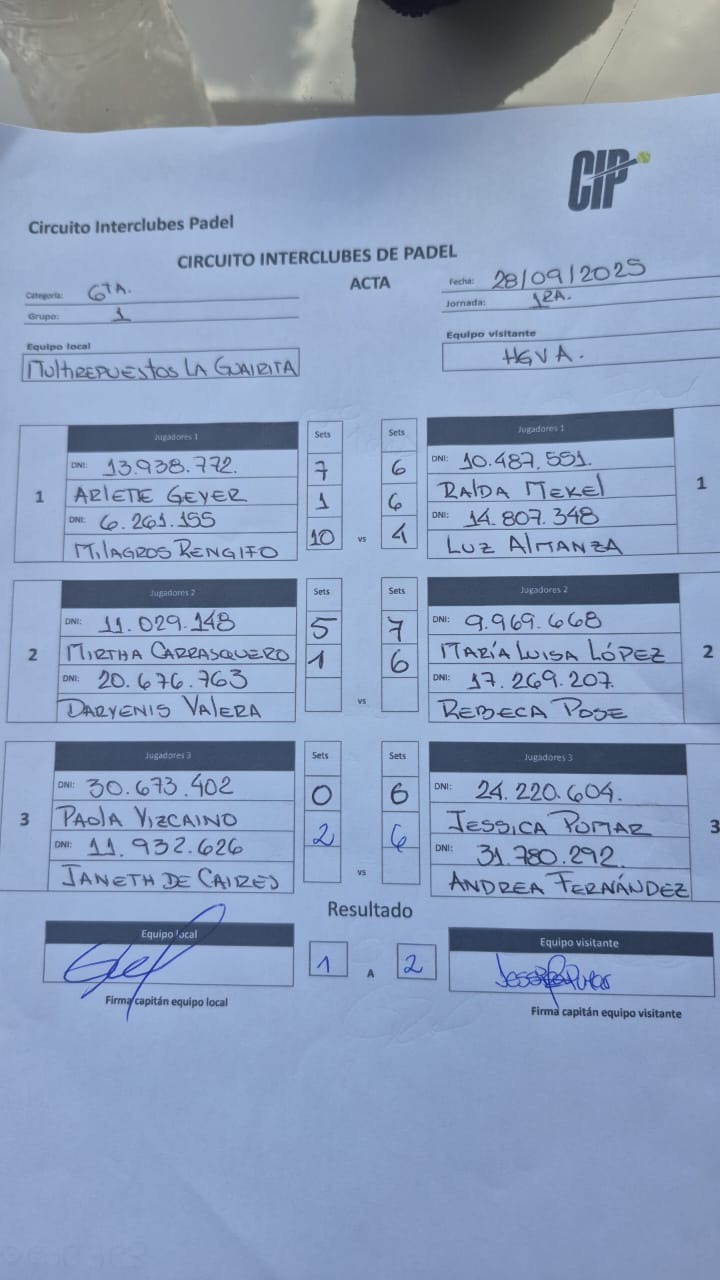 CIP
Circuito Interclubes Padel
CIRCUITO INTERCLUBES DE PADEL
Categoría: 6TA.
ACTA
Fecha: 28/09/2025
Grupo: 1
Jornada: 1RA.
Equipo local
Equipo visitante
MultiREPUESTOS LA GUAIRITA
HGVA.
Jugadores 1 Sets Sets Jugadores 1
DNI: 13.938.772. 7 6 DNI: 10.487.551.
1 ARLETE GEYER 1 6 RAIDA MEKEL 1
DNI: 6.261.155 10 vs 4 DNI: 14.807.348
MILAGROS RENGIFO LUZ ALMANZA
Jugadores 2 Sets Sets Jugadores 2
DNI: 11.029.148 5 7 DNI: 9.969.668
2 MIRTHA CARRASQUERO 1 6 MARÍA LUISA LÓPEZ 2
DNI: 20.676.763 vs DNI: 17.269.207
DARYENIS VALERA REBECA POSE
Jugadores 3 Sets Sets Jugadores 3
DNI: 30.673.402 0 6 DNI: 24.220.604.
3 PAOLA VIZCAINO 2 6 JESSICA PUMAR 3
DNI: 11.932.626 vs DNI: 31.780.292.
JANETH DE CAIRES ANDREA FERNÁNDEZ
Resultado
Equipo local 1 A 2 Equipo visitante
Firma capitán equipo local
Firma capitán equipo visitante